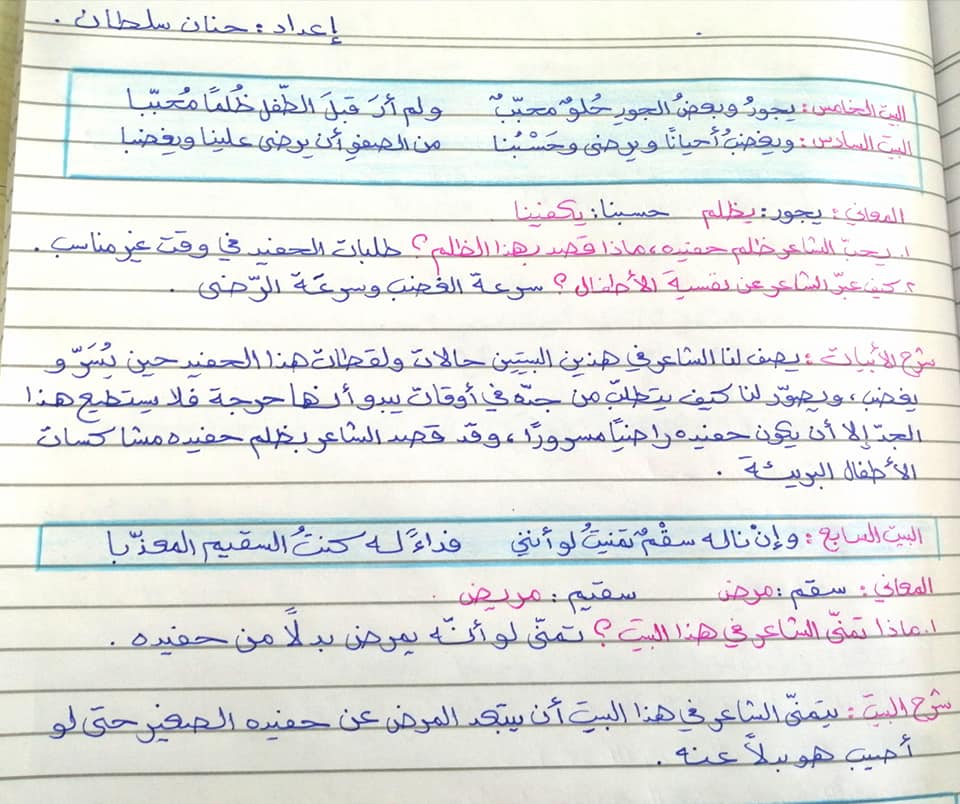 إعداد : حنان سلطان .
البيت الخامس : يجورُ وبعضُ الجورِ حُلوٌ محبّبٌ ولم أرَ قبلَ الطّفلِ ظُلمًا مُحبّبا
البيت السادس : ويغضبُ أحيانًا ويرضى وحَسْبُنا من الصفوِ أن يرضى علينا ويغضبا
المعاني : يجور : يظلم حسبنا : يكفينا
١. يحبّ الشاعر ظلم حفيده ، ماذا قصد بهذا الظلم ؟ طلبات الحفيد في وقت غير مناسب .
٢. كيف عبّر الشاعر عن نفسية الأطفال ؟ سرعة الغضب وسرعة الرّضى .
شرح الأبيات : يصف لنا الشاعر في هذين البيتين حالات ولقطات هذا الحفيد حين يُسَرّ و
يغضب ، ويصوّر لنا كيف يتطلّب من جدّه في أوقات يبدو أنها حرجة فلا يستطيع هذا
الجدّ إلا أن يكون حفيده راضيًا مسرورًا ، وقد قصد الشاعر بظلم حفيده مشاكسات
الأطفال البريئة .
البيت السابع : وإنْ ناله سقْمٌ تمنيتُ لو أنني فداءً له كنتُ السقيم المعذّبا
المعاني : سقم : مرض سقيم : مريض .
١. ماذا تمنّى الشاعر في هذا البيت ؟ تمنّى لو أنّه يمرض بدلاً من حفيده .
شرح البيت : يتمنّى الشاعر في هذا البيت أن يبتعد المرض عن حفيده الصغير حتى لو
أصيب هو بدلاً عنه .